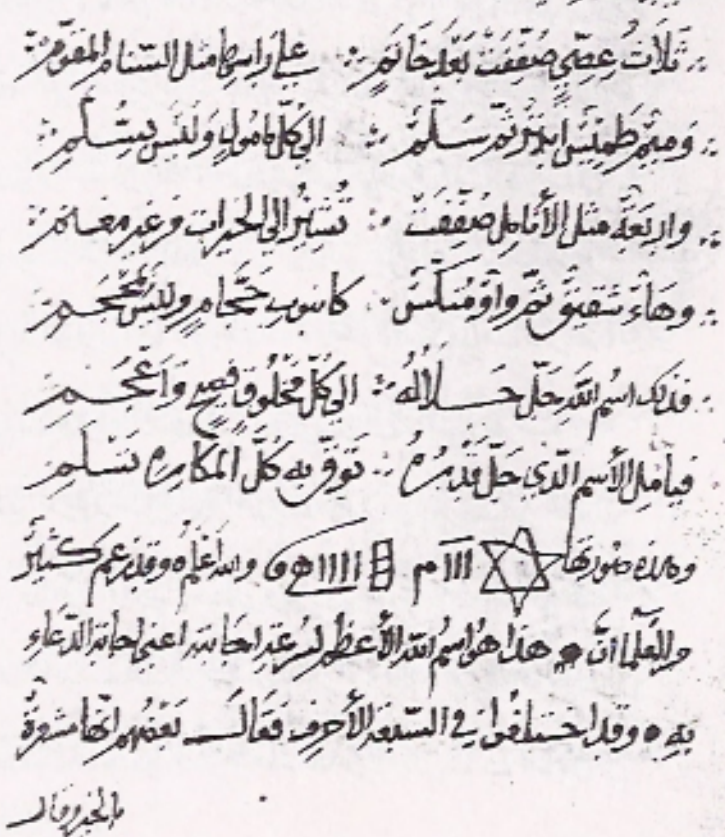 ثَلَاثُ عِصِيٍّ صُفِّفَتْ بَعْدَ خَاتَمٍ ∴ عَلَى رَأْسِهَا مثل السِّنَامِ المُقَوَّمِ
وَمِيمٌ طَمِيسٌ أَبْتَرٌ ثُمَّ سُلَّمٌ ∴ إلى كُلِّ مَامُولٍ وَلَيْسَ بِسُلَّمِ
واربعة مثل الأَنَامِل صُفِّفَتْ ∴ تُشِيرُ إلى الخيرات من غير معصم
وهَاءٌ شَقِيقٌ ثُمَّ واوٌ مُنَكَّسٌ ∴ كانبوب حَجَّامٍ وليس بِمِحْجَمِ
فذلك اسْمُ اللهِ جَلَّ جَلَالُهُ ∴ إلى كُلِّ مَخْلُوقٍ فَصِيحٍ وَأَعْجَمِ
فيا حامل الأسم الَّذِي جَلَّ قَدْرُهُ ∴ تَوَقَّ به كُلَّ المَكَارِهِ تَسْلَمِ
وهذه صورتها ✡ ااا م اااا ه و والله أعلم وقد زعم كَثِيرٌ
من العُلَمَا أنَّ هذا هُوَ اسْمُ الله الأعظم لسرعة اجابته اعني اجابة الدُّعَاءِ
بِهِ وقد اختلفُوا في السَّبْعَةِ الأحرف فَقَالَ بَعْضُهُم انَّهَا